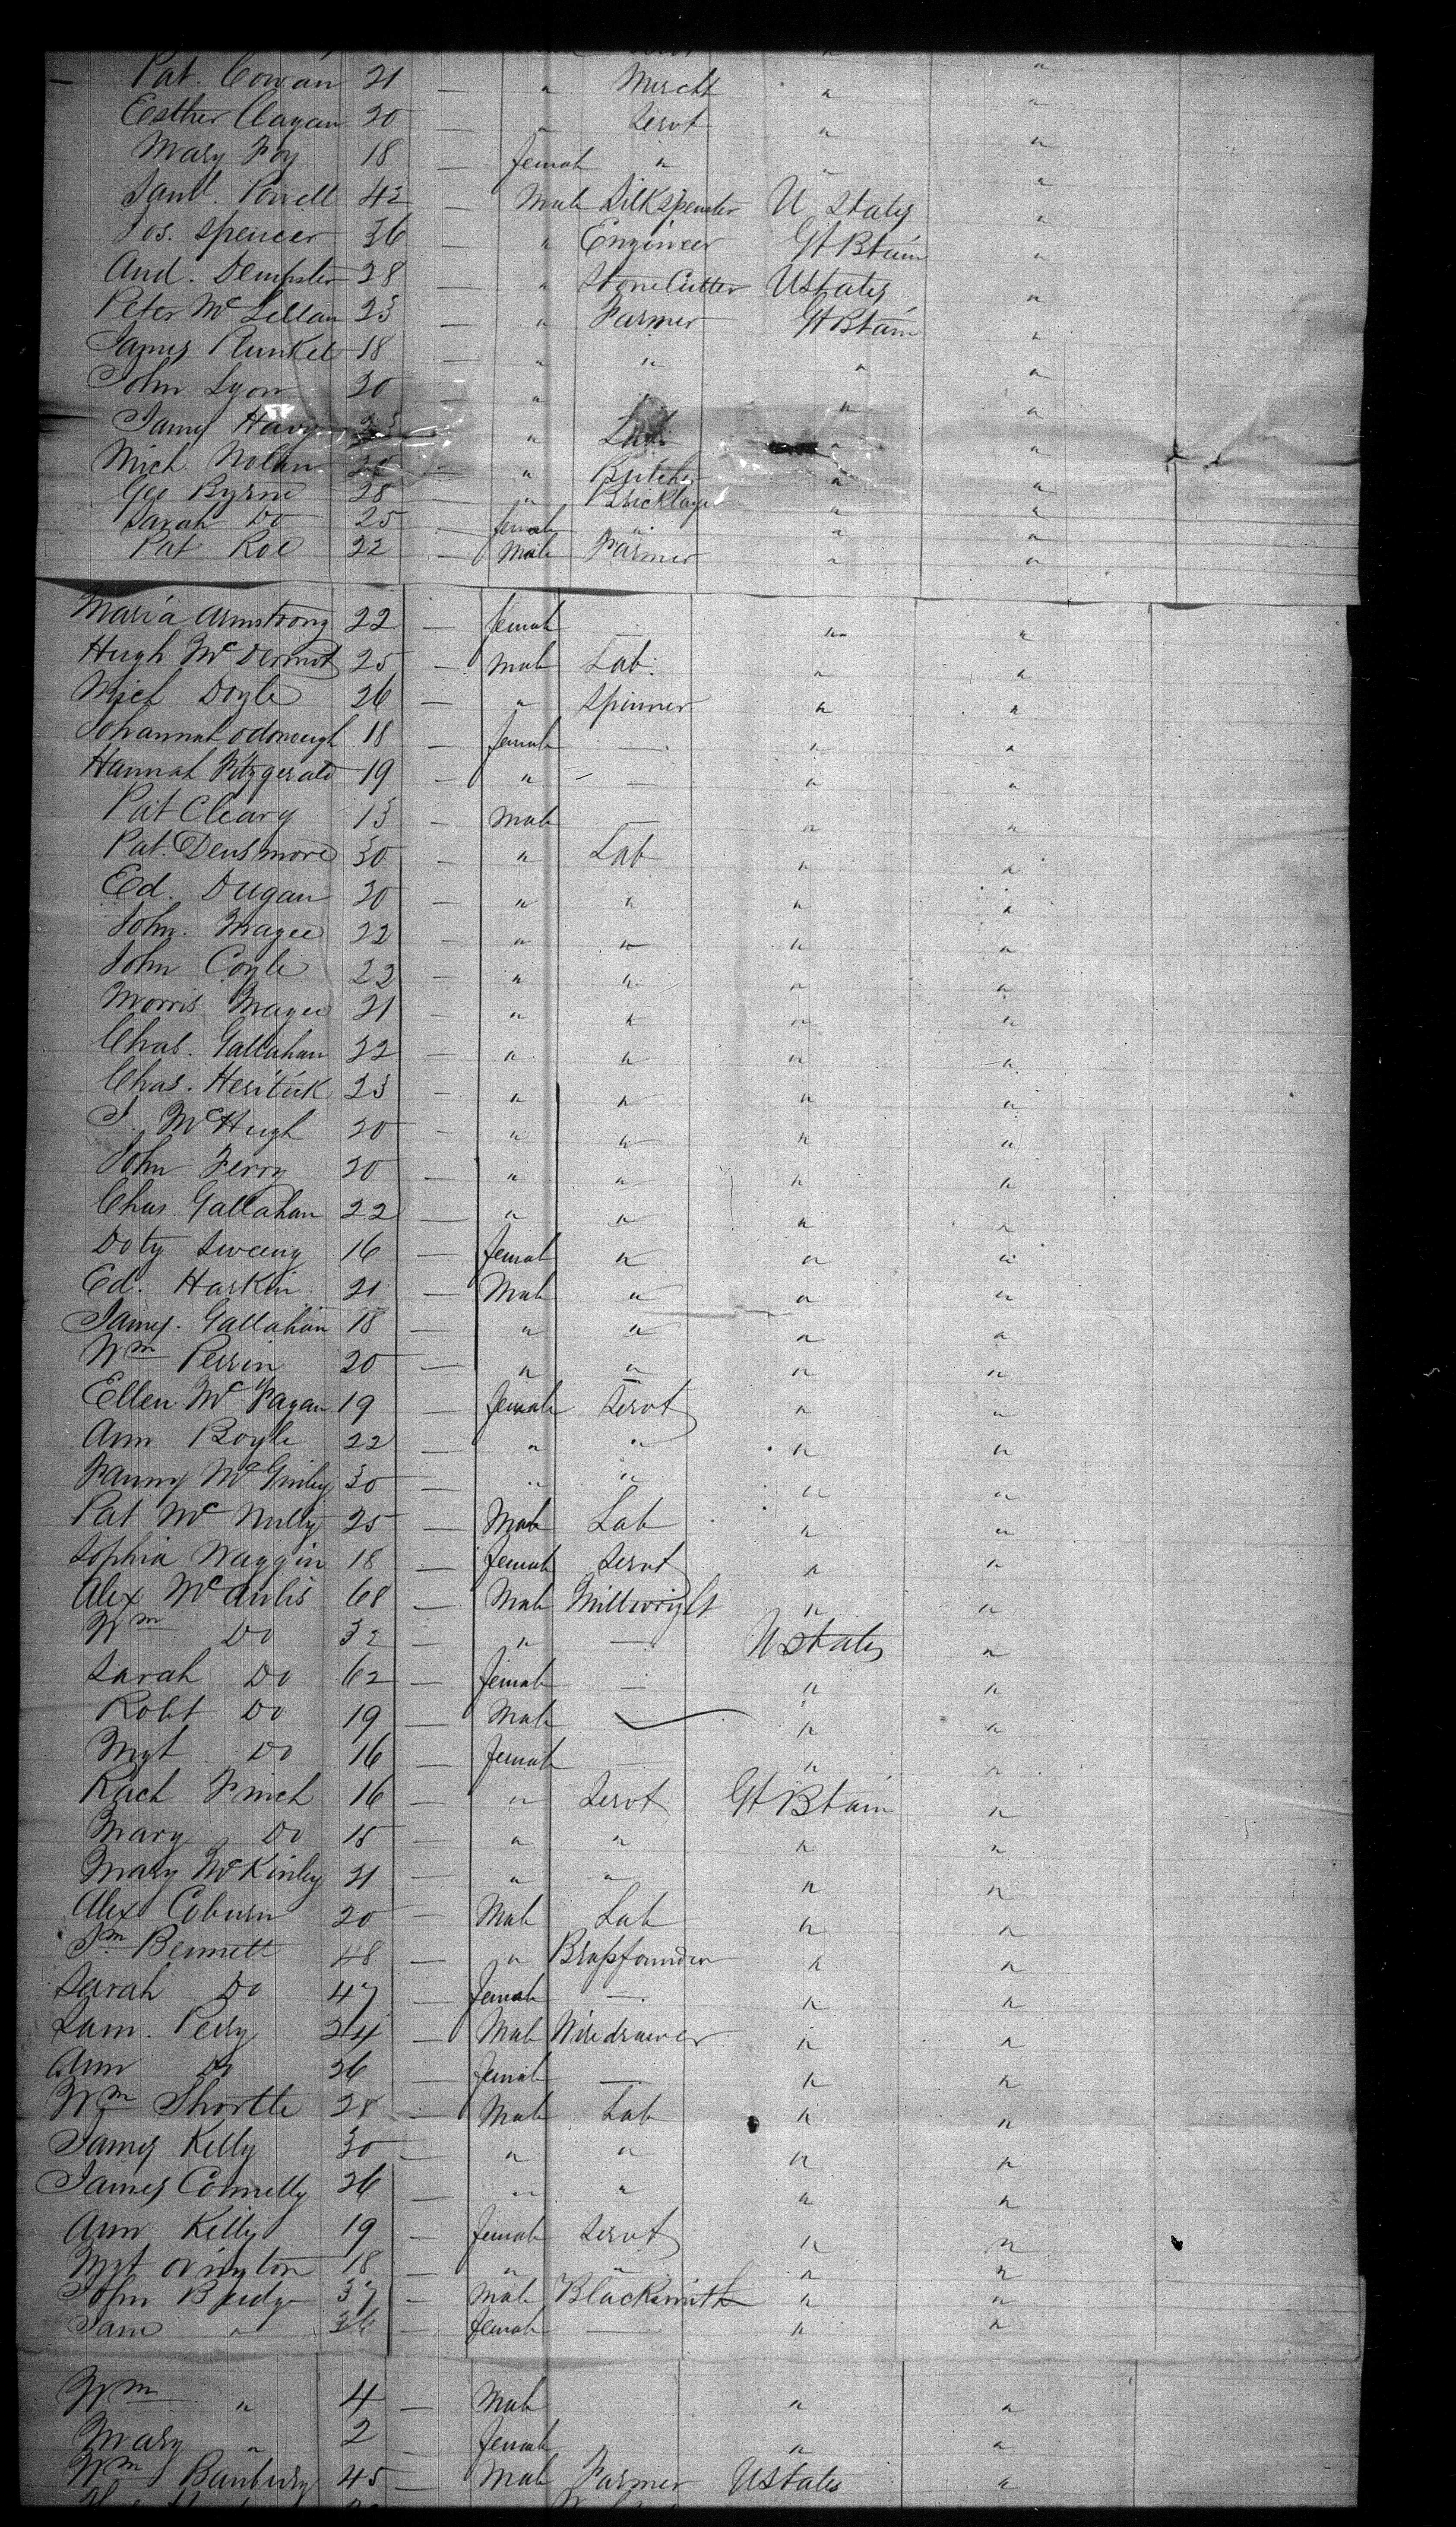 Pat. Cowan 21 — " Mercht " "
Esther Clagan 20 — " Servt " "
Mary Foy 18 — female " " "
Saml. Powell 42 — Male Silkspenster U States "
Jos. Spencer 36 — " Engineer Gt Btain "
And. Dempster 28 — " Stone Cutter U States "
Peter McLellan 23 — " Farmer Gt Btain "
James Plunket 18 — " " " "
John Lyon 20 — " " "
James Havy — " Lab. " "
Mich Nolan 20 — " Butcher " "
Geo Byrne 28 " Bricklayer " "
Sarah Do 25 — female " " "
Pat Roe 22 — Male Farmer " "
Maria Armstrong 22 — female — " "
Hugh McDermot 25 — Male Lab. " "
Mich Doyle 26 — " Spinner " "
Johannah Odonough 18 — female — " "
Hannah Fitzgerald 19 — " — " "
Pat Cleary 13 — Male — " "
Pat. Densmore 30 — " Lab " "
Ed. Dugan 30 — " " " "
John. Magee 22 — " " " "
John Coyle 22 — " " " "
Morris Magee 21 — " " " "
Chas. Gallahan 22 — " " " "
Chas. Heritick 23 — " " " "
J. McHugh 20 — " " " "
John Ferry 20 — " " " "
Chas. Gallahan 22 — " " " "
Doty Sweeny 16 — female " " "
Ed. Harkin 21 — Male " " "
James. Gallahan 18 — " " " "
Wm Perrin 20 — " " " "
Ellen McFagan 19 — female Servt " "
Ann Boyle 22 — " " " "
Fanny McGinley 30 — " " " "
Pat McNulty 25 — Male Lab " "
Sophia Waggin 18 — female Servt " "
Alex McAulis 68 — Male Millwright " "
Wm Do 32 — " — U States "
Sarah Do 62 — female — " "
Robt Do 19 — Male — " "
Mgt Do 16 — female — " "
Rach Finch 16 — " Servt Gt Btain "
Mary Do 15 — " " " "
Mary McKinley 21 — " " " "
Alex Coburn 20 — Male Lab " "
Jm Bennett 48 — " Brassfounder " "
Sarah Do 47 — female — " "
Sam. Perry 24 — Male Wiredrawer " "
Ann Do 26 — female — " "
Wm Shortle 28 — Male Lab " "
James Kelly 30 — " " " "
James Connelly 26 — " " " "
Ann Kelly 19 — female Servt " "
Mgt Ovington 18 — " " " "
John Budge 37 — Male Blacksmith " "
Jane " 36 — female — " "
Wm " 4 — Male " "
Mary " 2 — female " "
Wm Banbury 45 — Male Farmer U States "